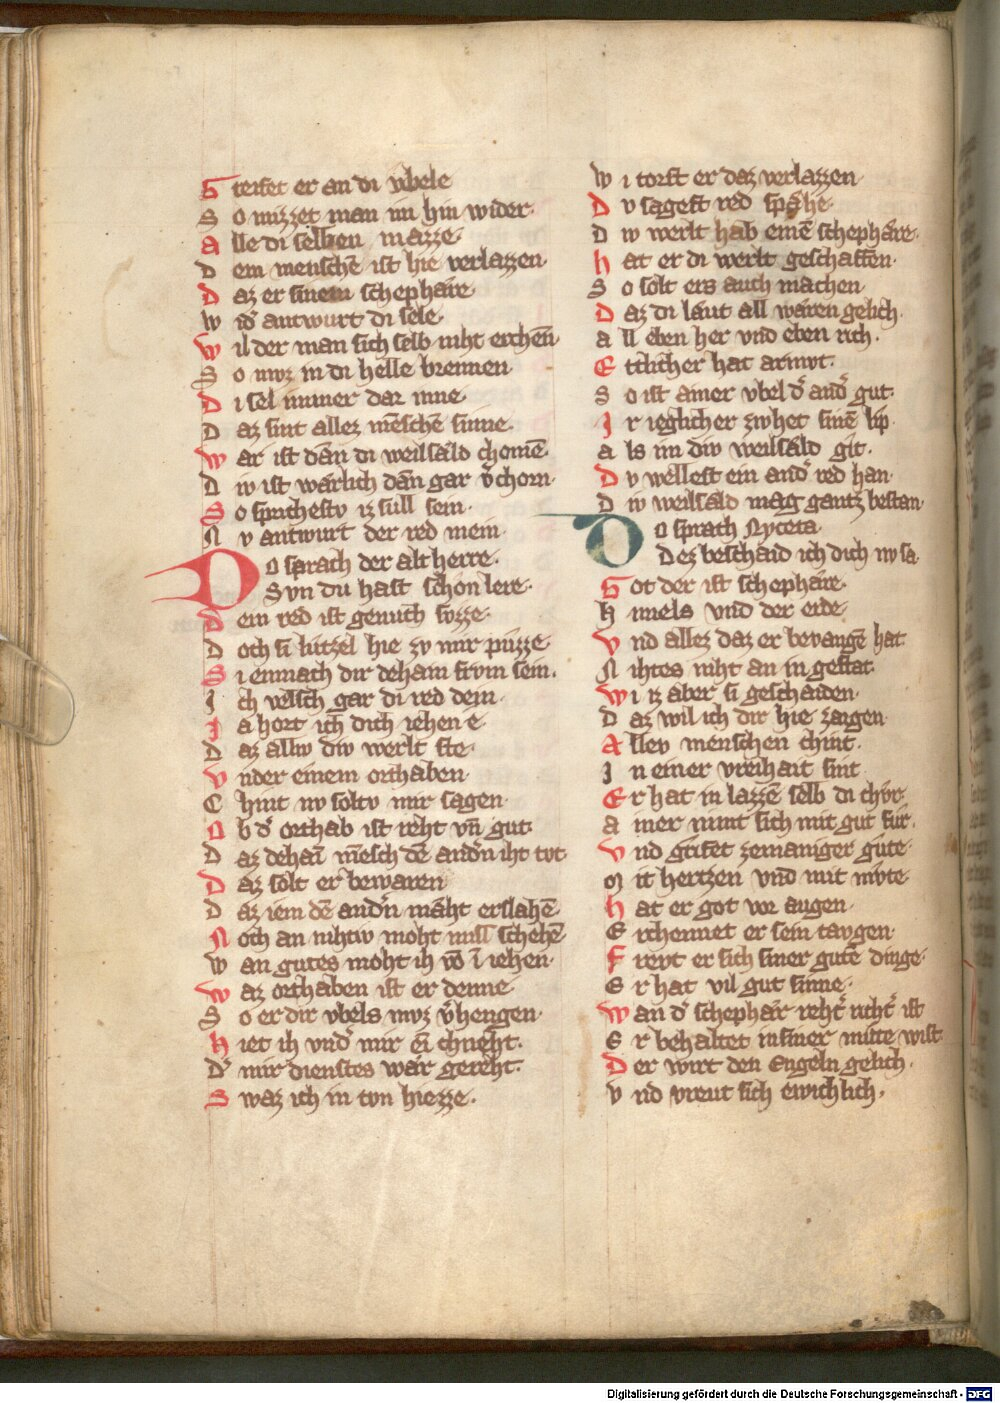 G reifet er an di vbele
S o mizzet man im hin wider·
A lle di selben mazze·
D em menschē ist hie verlazzen·
D az er sinem schephare
W idˀ antwurt di sele·
W il der man sich selb niht erchēn·
S o mvz in di helle brennen
D i sel immer dar inne
D az sint allez mēschē sinne·
W ar ist dān di weilsåld chomē·
D iv ist wårlich dān gar v̄chom·
S o sprichestv iz sull sein·
N v antwurt der red mein
Do sprach der alt herre·
Svn du hast schon lere·
D ein red ist genuch svzze·
D och si lutzel hie zv mir puzze
S i ennach dir dehain frvm sein·
I ch velsch gar di red dein·
I a hort ich dich iehen e·
D az alliv div werlt ste·
V nder einem orthaben·
C hint nv soltv mir sagen·
O b dˀ orthab ist reht vn̄ gut·
D az dehaī mēsch dē andˀn iht tvt·
D az solt er bewaren
D az iem dē andˀn måht erslahē·
N och an nihtiv moht missˀschehē·
W an gutes moht ih vō ī iehen·
W az orthaben ist er denne·
S o er dir vbels mvz v̄hengen·
H iet ih vndˀ mir ein chneht·
Dˀ mir dienstes wår gereht·
S waz ich in tvn hiezze·
W i torst er daz verlazzen·
D v sagest red spåhe·
D iv werlt hab einē schephåre·
H at er di werlt geschaffen·
S o solt ers auch machen
D az di låut all wåren gelich·
A ll eben her vnd eben rich·
E tslicher hat armvt·
S o ist ainer vbel dˀ andˀ gut·
I r ieglicher zivhet sinē lip
A ls im div weilsåld git·
D v wellest ein andˀ red han·
D iv weilsåld mag gantz bestan·
Do sprach Nyceta
Dez beschaid ich dich nv sa·
G ot der ist schephåre·
H imels vnd der erde·
V nd allez daz er bevangē hat·
N ihtes niht an in gestat·
W i iz aber si geschaiden·
D az wil ich dir hie zaigen
A llev menschen chint·
I n einer vreihait sint
E r hat in lazzē selb di chvr·
A iner nimt sich mit gut fur·
V nd grifet zemaniger gůte·
M it hertzen vnd mit mvte·
H at er got vor augen·
E rchennet er sein tavgen·
F revt er sich siner gutē dinge·
E r hat vil gut sinne·
W an dˀ schephår rehtˀ rihtˀ ist
E r behaltet in siner mitte wist·
D er wirt den Engeln gelich·
V nd vreut sich ewichlich·
Digitalisierung gefördert durch die Deutsche Forschungsgemeinschaft - DFG